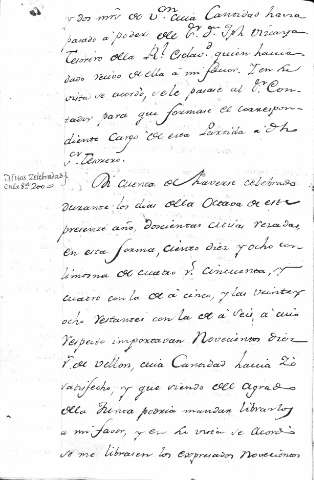 y dos mrs. de Von. cuia Cantidad havia
pasado a poder del Sr. Dn. Jph Vizcarra
Tesorero de la Rl. Esclavd. quien havia
dado recivo de ella a mi favor. Y en su
vista se acordó, se le pasase al Sr. Con-
tador para que formase el correspon-
diente Cargo de esta Partida a dho
Sr. Tesorero.
Misas Zelebradas
en la 8a. 200
Di cuenta de haverse celebrado
durante los dias de la Octava de este
presente año, doscientas misas rezadas,
en esta forma, ciento diez y ocho con
limosna de quatro rs. cincuenta, y
quatro con la de a cinco, y las veinte y
ocho restantes con la de a seis, a cuio
respecto importavan Novecientos diez
rs. de vellon, cuia Cantidad havia Yo
satisfecho, y que siendo del agrado
de la Junta podria mandar librarlos
a mi favor, y en su vista se acordó
se me librasen los expresados Novecientos